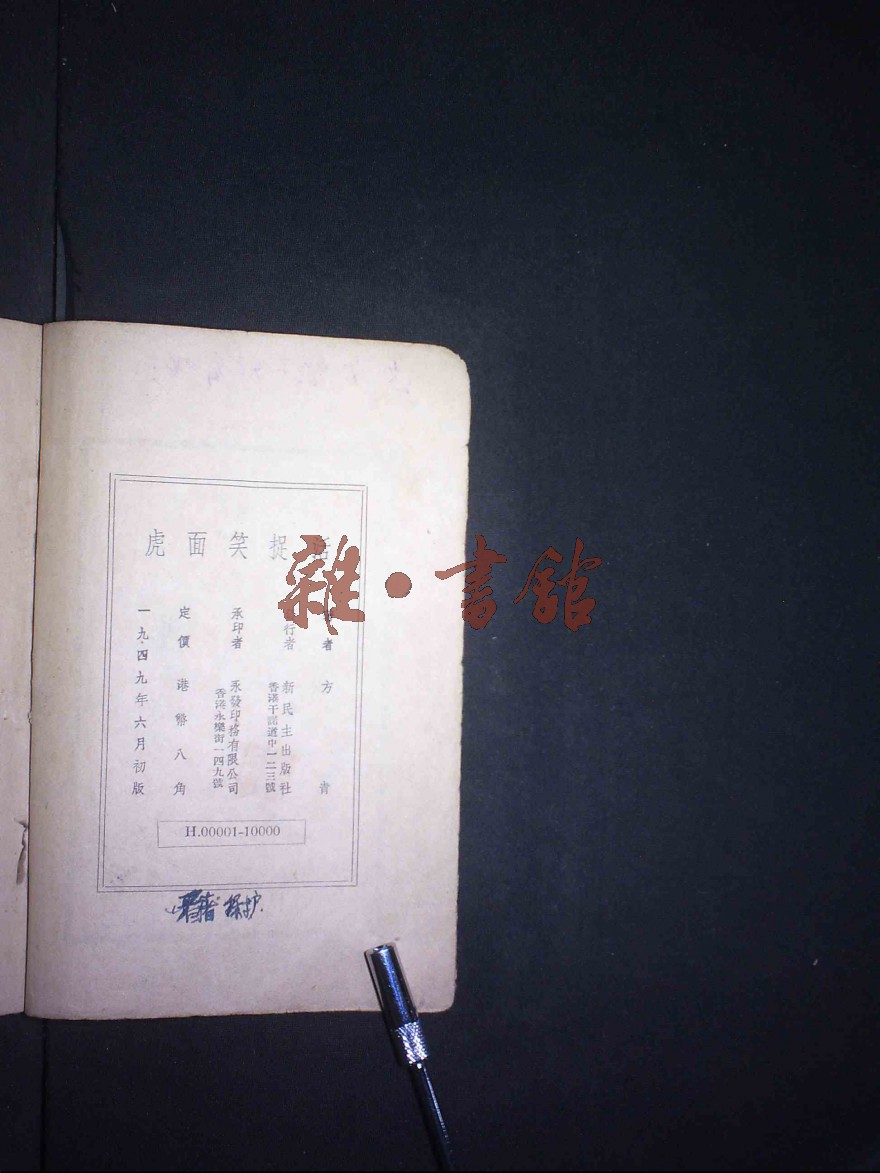 活捉笑面虎
者 方青
行者 新民主出版社
香港干諾道中一二三號
承印者 永發印務有限公司
香港永樂街一四九號
定價港幣八角
一九四九年六月初版
H.00001-10000
保护
雜·書館